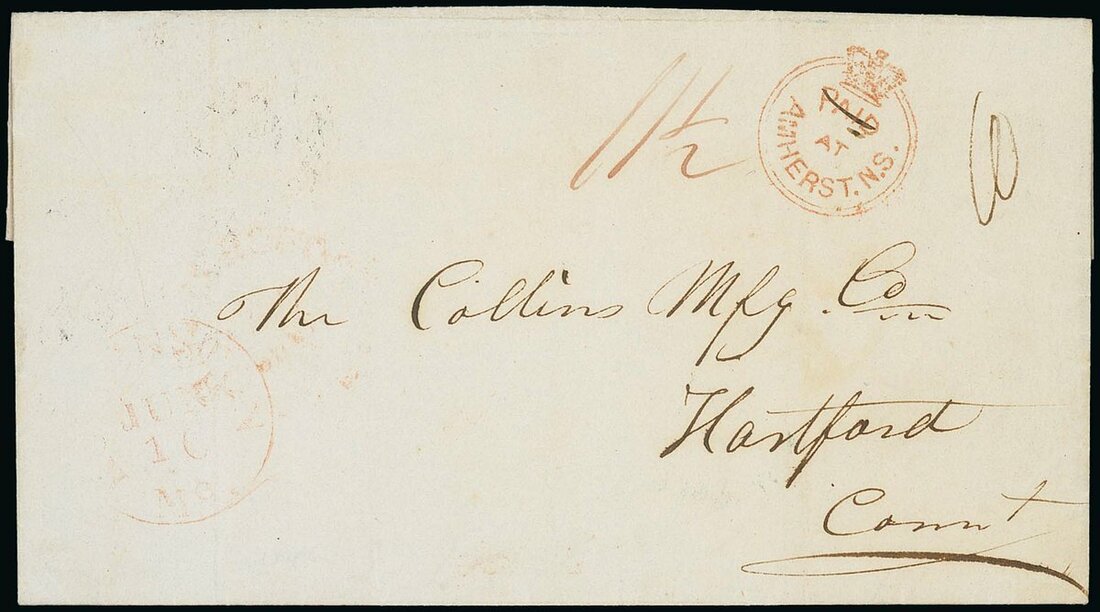 11½
PAID
AT
AMHERST. N.S.
The Collins Mfg. Co
Hartford
Connt
JUNE
10